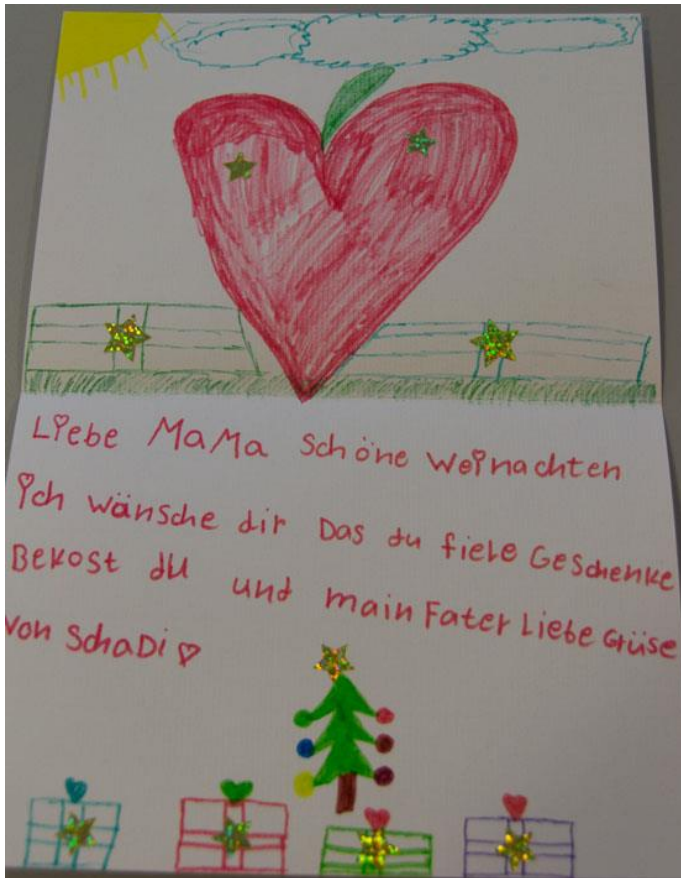 Liebe MaMa Schöne Weinachten
ich wänsche dir Das du fiele Geschenke
Bekost du und main Fater Liebe Grüse
von SchaDi